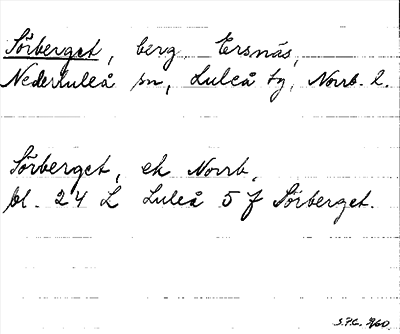 Sörberget, berg, Ersnäs,
Nederluleå sn, Luleå tg, Norrb. l.
Sörberget, ek Norrb.
bl. 24 L Luleå 5 f Sörberget.